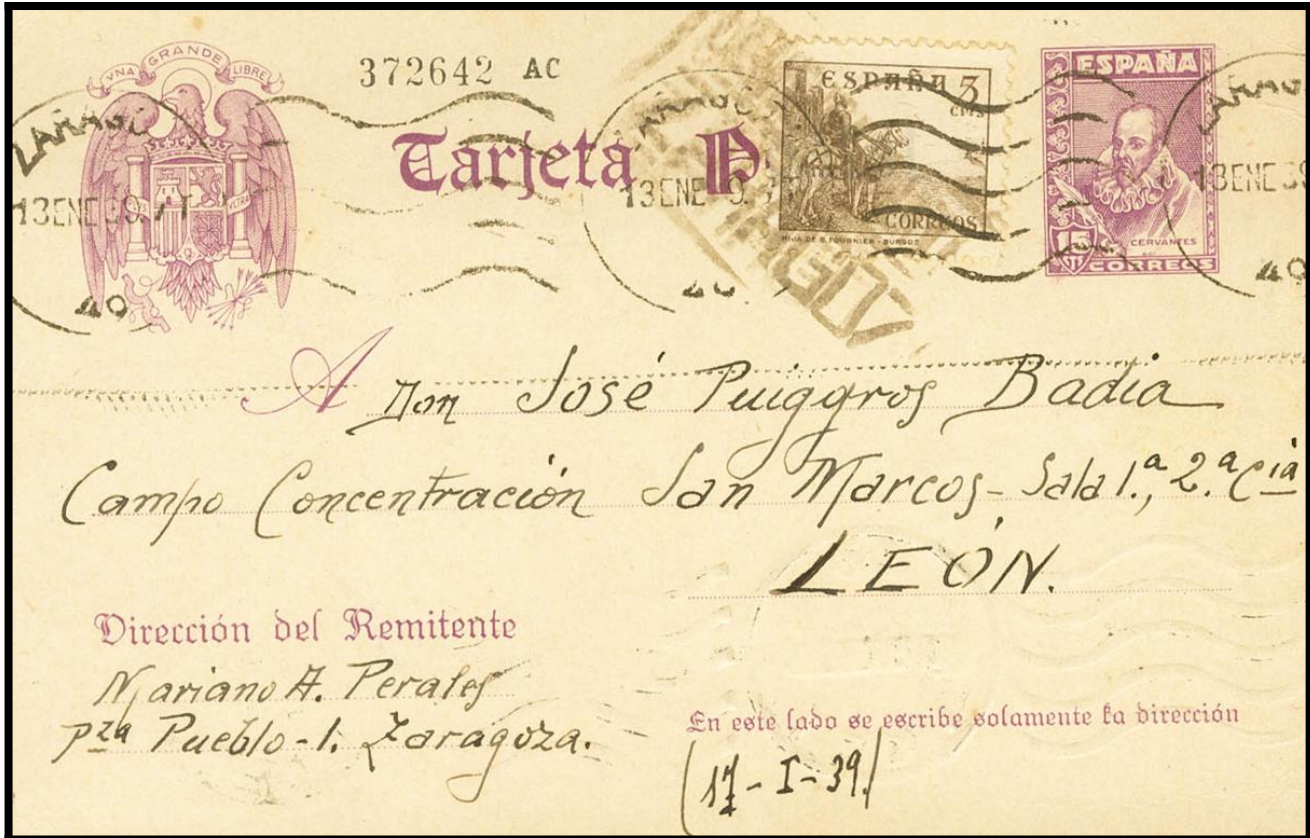 UNA GRANDE LIBRE
372642 AC
Tarjeta P
ESPAÑA 5
CMS
CORREOS
HIJA DE B. FOURNIER - BURGOS
ESPAÑA
15
CERVANTES
CORREOS
13 ENE 39
13 ENE
13 ENE 39
A Don José Puiggros Badia
Campo Concentración San Marcos - Sala 1.ª, 2.ª Cia
LEÓN.
Dirección del Remitente
Mariano A. Perales
Pza Pueblo - 1. Zaragoza.
En este lado se escribe solamente la dirección
(17 - I - 39.)